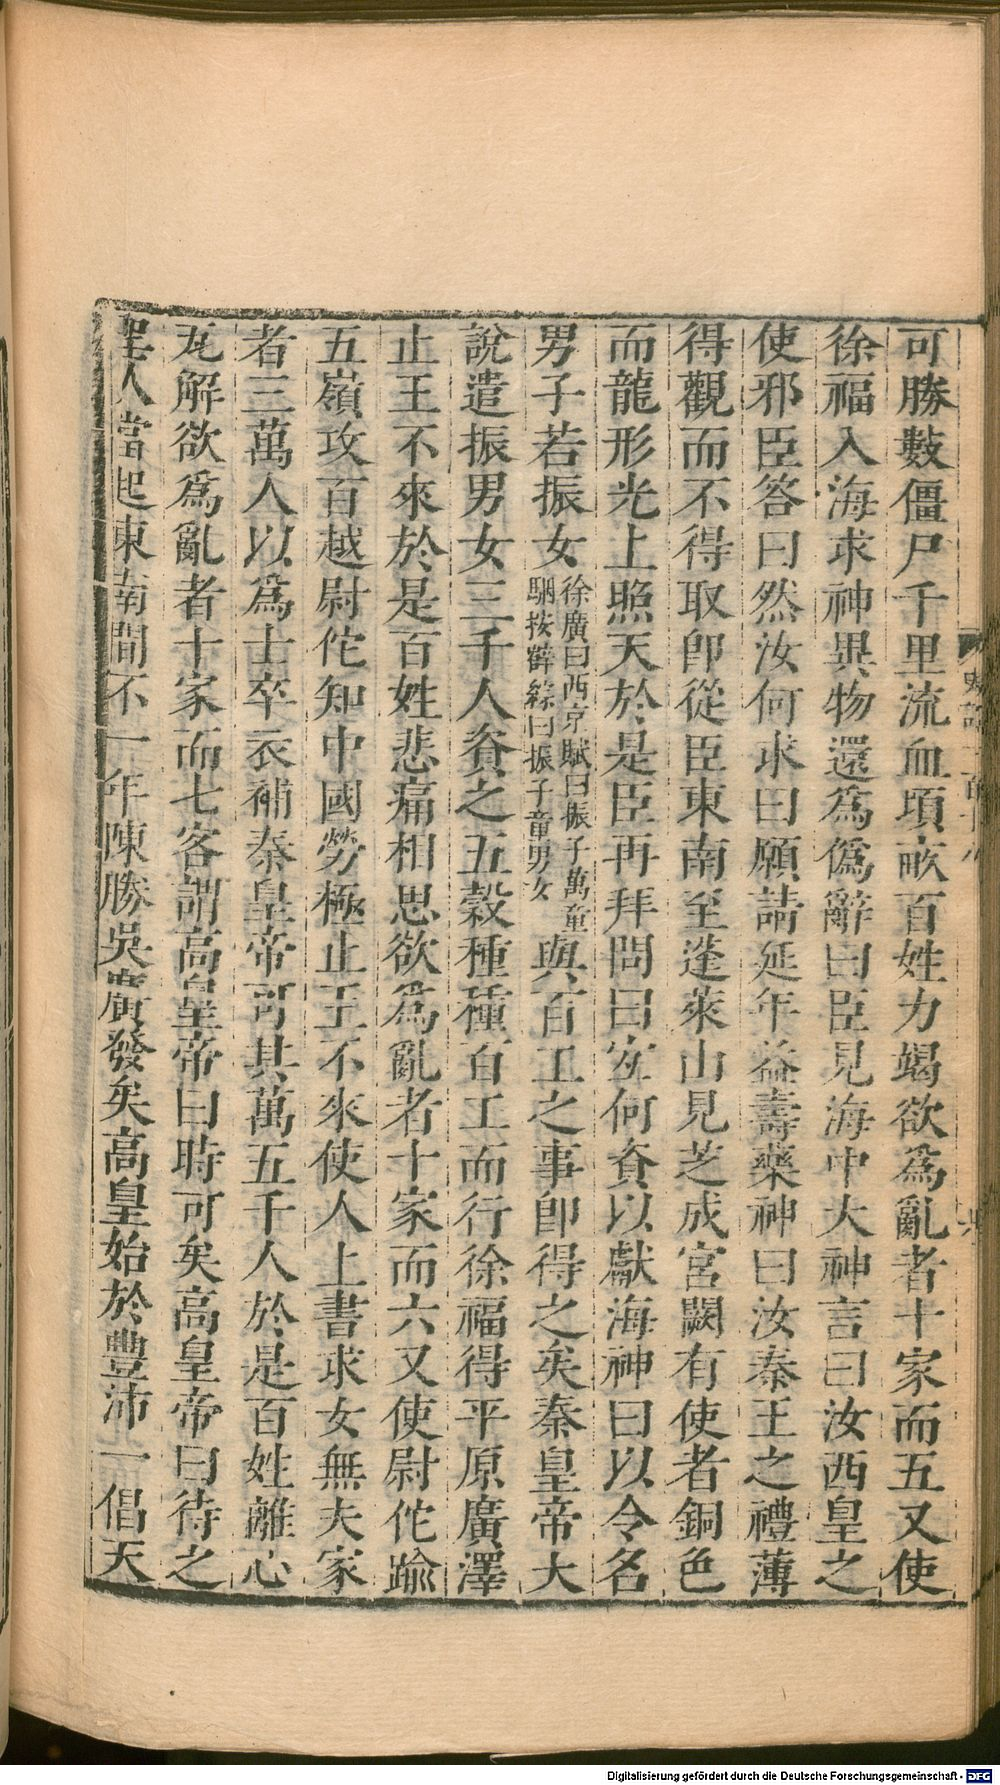 可勝數僵尸千里流血頃畝百姓力竭欲爲亂者十家而五又使
徐福入海求神異物還爲僞辭曰臣見海中大神言曰汝西皇之
使邪臣答曰然汝何求曰願請延年益壽藥神曰汝秦王之禮薄
得觀而不得取卽從臣東南至蓬萊山見芝成宮闕有使者銅色
而龍形光上照天於是臣再拜問曰宐何資以獻海神曰以令名
男子若振女
徐廣曰西京賦曰振子萬童
駰按薛綜曰振子童男女
與百工之事卽得之矣秦皇帝大
說遣振男女三千人資之五穀種種百工而行徐福得平原廣澤
止王不來於是百姓悲痛相思欲爲亂者十家而六又使尉佗踰
五嶺攻百越尉佗知中國勞極止王不來使人上書求女無夫家
者三萬人以爲士卒衣補秦皇帝可其萬五千人於是百姓離心
瓦解欲爲亂者十家而七客謂高皇帝曰時可矣高皇帝曰待之
聖人當起東南間不一年陳勝吳廣發矣高皇始於豐沛一倡天
史記一百十八
Digitalisierung gefördert durch die Deutsche Forschungsgemeinschaft - DFG